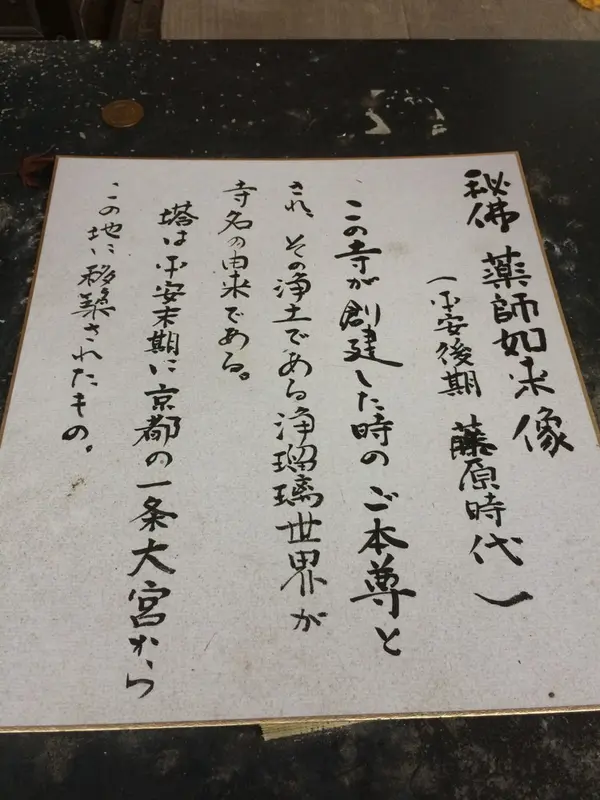 秘佛 薬師如来像
(平安後期 藤原時代)
この寺が創建した時のご本尊と
され、その浄土である浄瑠璃世界が
寺名の由来である。
塔は平安末期に京都の一条大宮から
この地に移築されたもの。